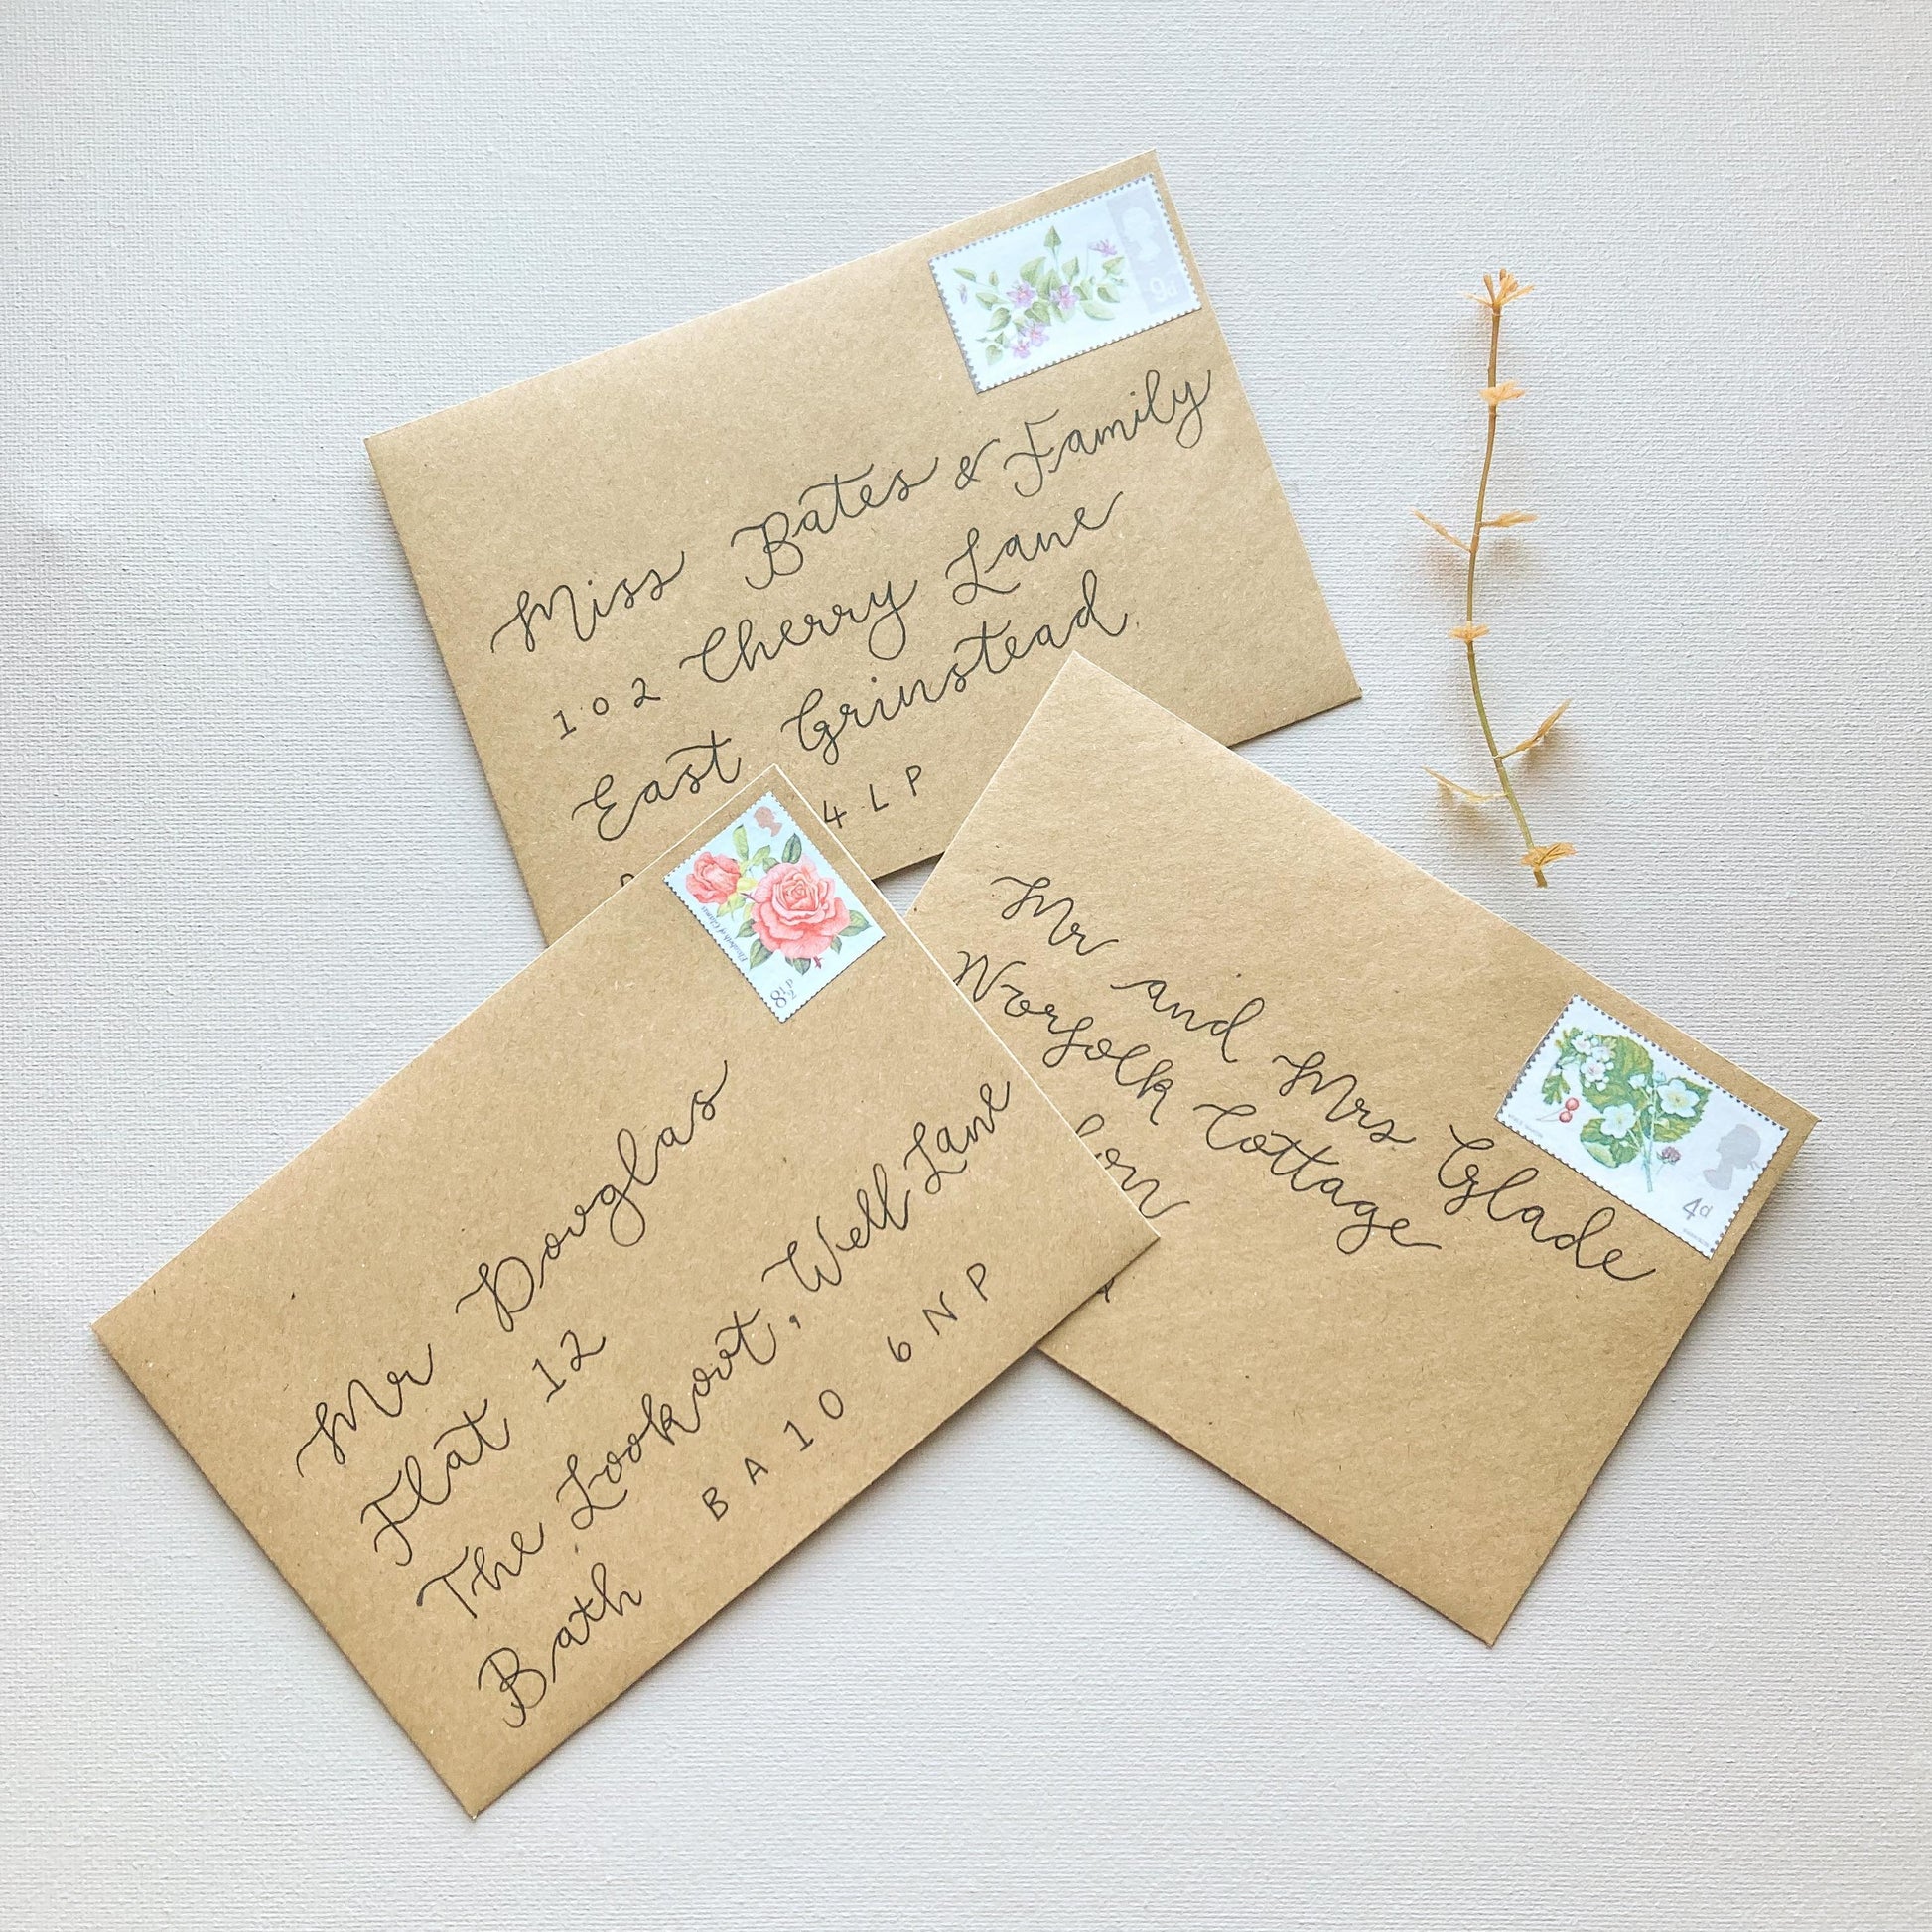 9d
Miss Bates & Family
102 Cherry Lane
East Grinstead
4LP
8½P
Mr Douglas
Flat 12
The Lookout, Well Lane
Bath BA10 6NP
4d
Mr and Mrs Glade
Norfolk Cottage